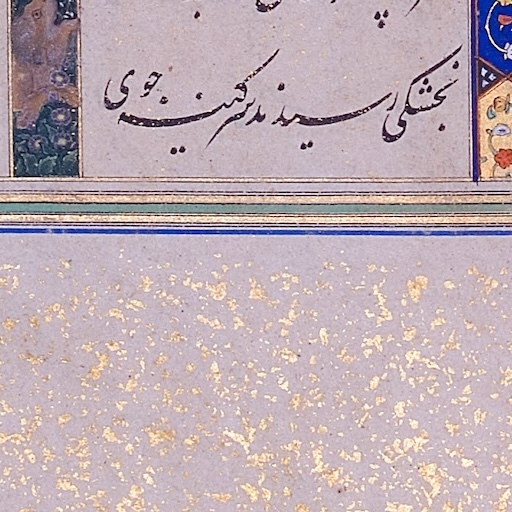 بخشکی رسیدند سر کینه جوی